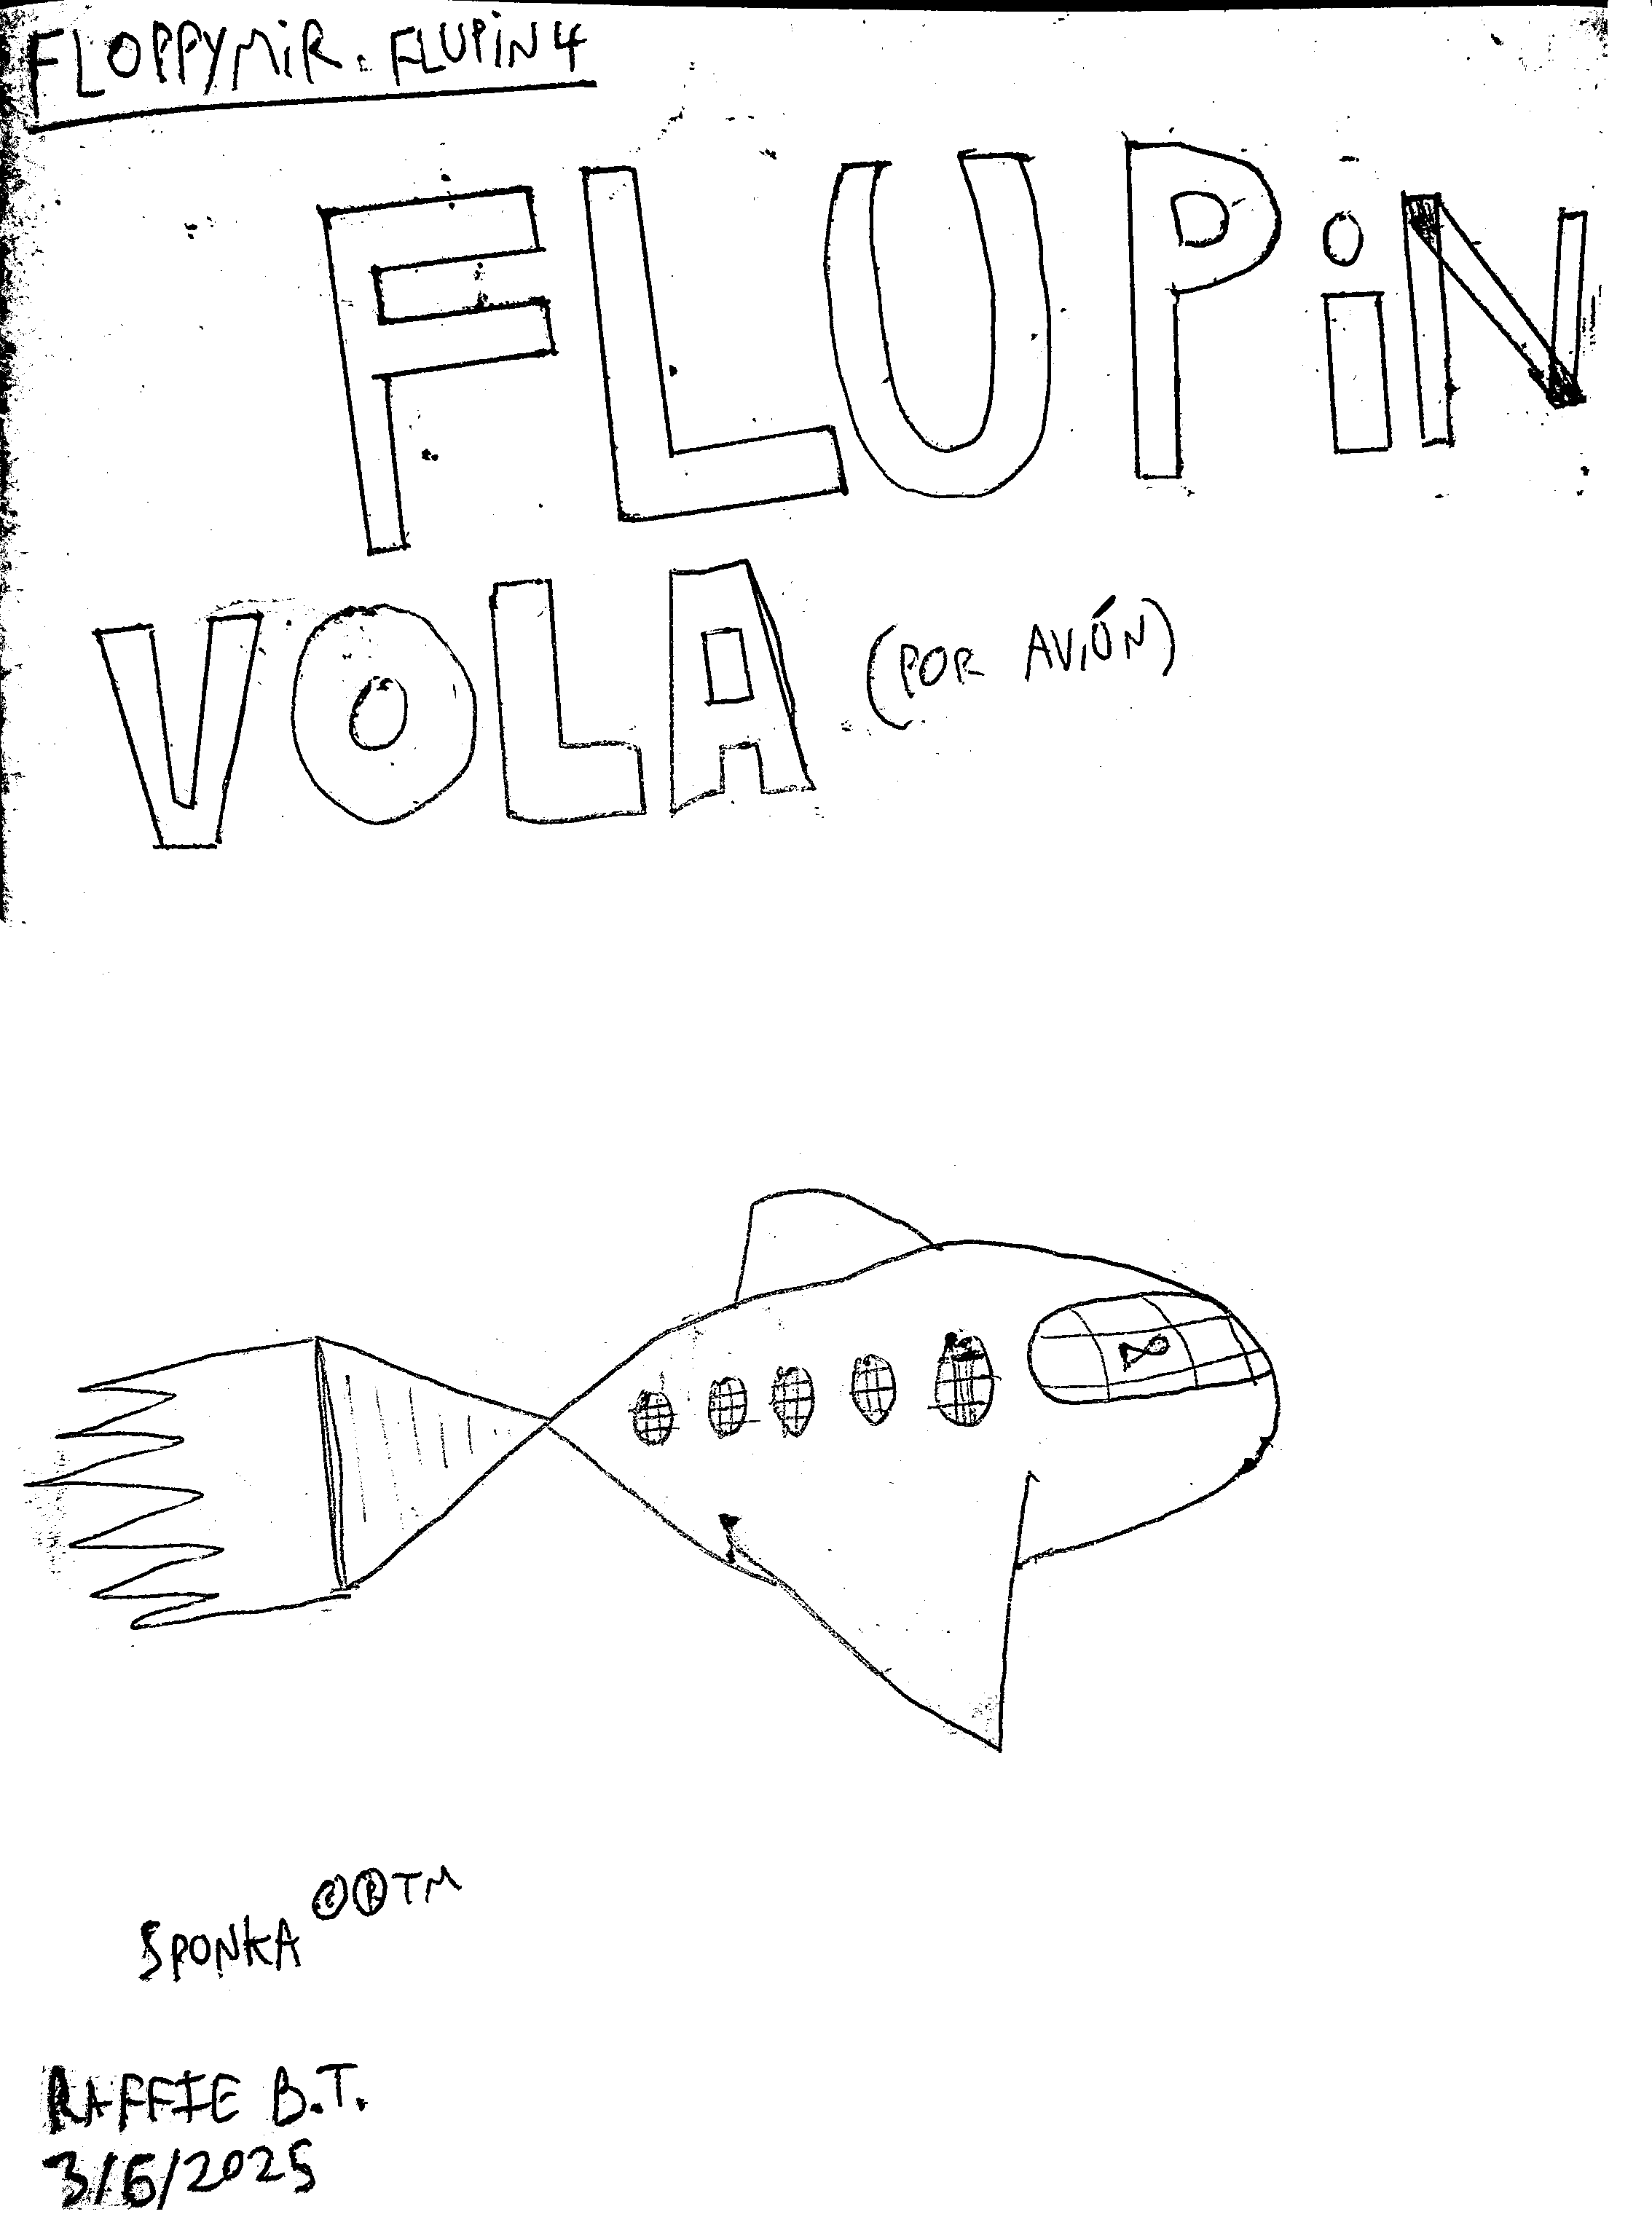 FLOPPYMiR. FLUPiN 4
FLUPiN
VOLA (POR AViÚN)
SPONKA ©®TM
RAFFIE B.T.
3/6/2025